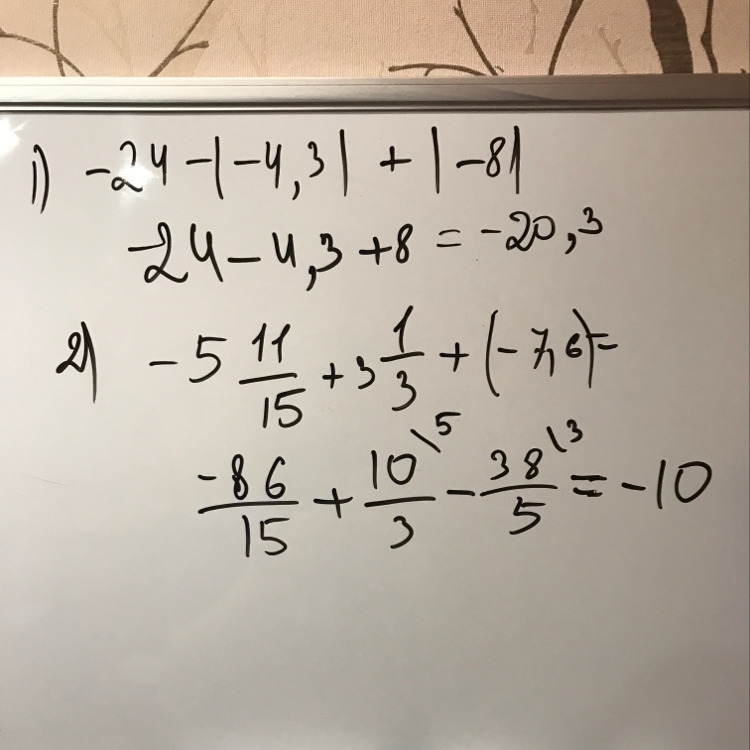 1) -24 -|-4,3| + |-8|
-24 - 4,3 + 8 = -20,3
2) -5 11/15 + 3 1/3 + (-7,6) =
-86/15 + 10/3 \5 - 38/5 \3 = -10